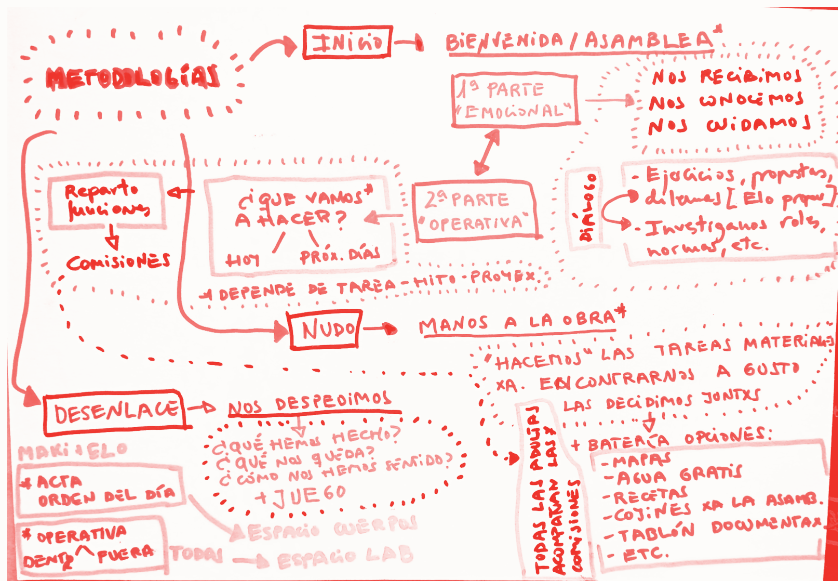 METODOLOGÍAS
INICIO
BIENVENIDA/ASAMBLEA*
1ª PARTE
"EMOCIONAL"
NOS RECIBIMOS
NOS CONOCEMOS
NOS CUIDAMOS
DIÁLOGO
- Ejercicios, propstas,
dilemas [Elo propus]
- Investigamos roles,
normas, etc.
2ª PARTE
"OPERATIVA"
¿QUE VAMOS*
A HACER?
HOY
PRÓX. DÍAS
Reparto
funciones
COMISIONES
* DEPENDE DE TAREA-HITO-PROYEX.
NUDO
MANOS A LA OBRA*
"HACEMOS" LAS TAREAS MATERIALES
XA. ENCONTRARNOS A GUSTO
LAS DECIDIMOS JUNTXS
+ BATERÍA OPCIONES:
- MAPAS
- AGUA GRATIS
- RECETAS
- COJINES XA LA ASAMB.
- TABLÓN DOCUMENTAX.
- ETC.
TODAS LAS ADULTAS
ACOMPAÑAN LAS X
COMISIONES
DESENLACE
NOS DESPEDIMOS
¿QUÉ HEMOS HECHO?
¿QUÉ NOS QUEDA?
¿CÓMO NOS HEMOS SENTIDO?
+ JUEGO
MAKI + ELO
* ACTA
ORDEN DEL DÍA
ESPACIO CUERPOS
* OPERATIVA
DENTRO ^ FUERA
TODAS
ESPACIO LAB